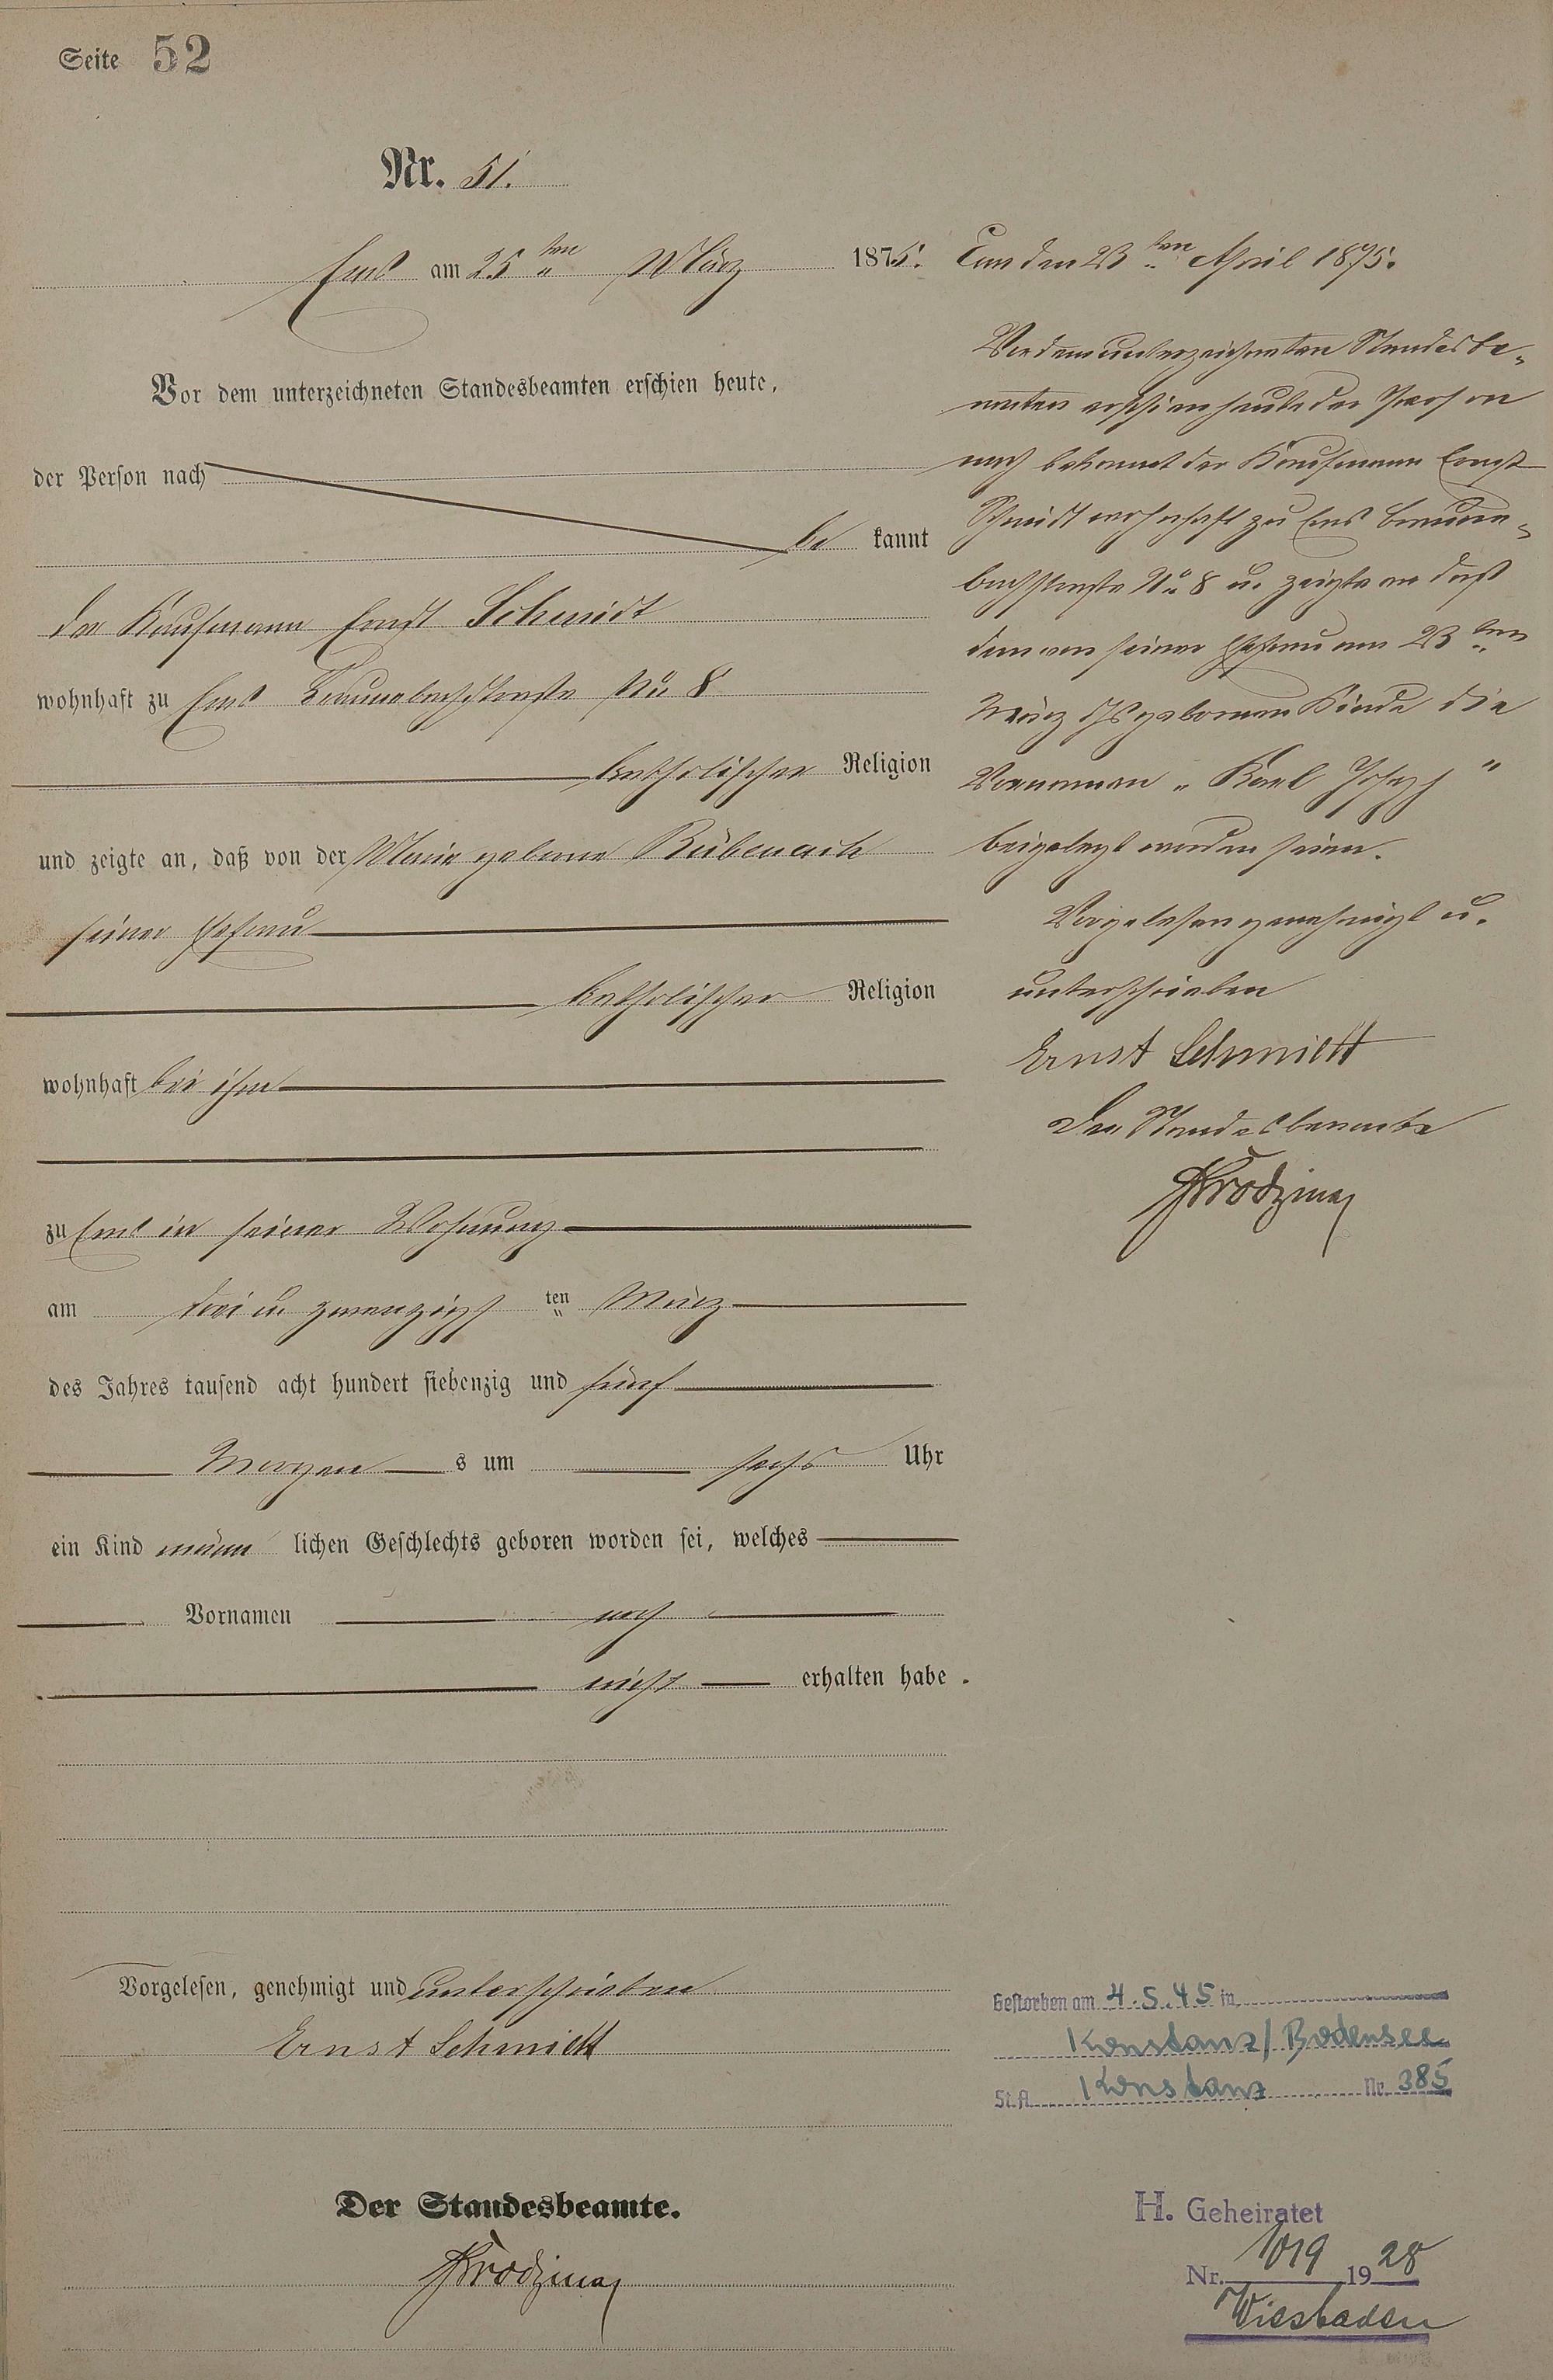 Seite 52
Nr. 51.
Ems am 25ten März 1875.
Vor dem unterzeichneten Standesbeamten erschien heute,
der Person nach
be kannt
der Kaufmann Ernst Schmidt
wohnhaft zu Ems Braunebachstraße No 8
katholischer Religion
und zeigte an, daß von der Marie geborne Rübenach
seiner Ehefrau
katholischer Religion
wohnhaft bei ihm
zu Ems in seiner Wohnung
am drei u. zwanzigsten März
des Jahres tausend acht hundert siebenzig und fünf
Morgens um sechs Uhr
ein Kind männlichen Geschlechts geboren worden sei, welches
Vornamen noch
nicht erhalten habe.
Vorgelesen, genehmigt und unterschrieben
Ernst Schmidt
Der Standesbeamte.
Ems den 23ten April 1875.
Vor dem unterzeichneten Standesbe-
amten erschien heute der Person
nach bekannt der Kaufmann Ernst
Schmidt wohnhaft zu Ems Braune-
bachstraße No 8 u. zeigte an daß
dem von seiner Ehefrau am 23ten
März d Js geborenen Kinde die
Vornamen „Karl Joseph"
beigelegt worden seien.
Vorgelesen genehmigt u.
unterschrieben
Ernst Schmidt
Der Standesbeamte
Gestorben am 4.5.45 in
Konstanz/Bodensee
St.A. Konstanz Nr. 385
H. Geheiratet
Nr. 1019 1928
Wiesbaden